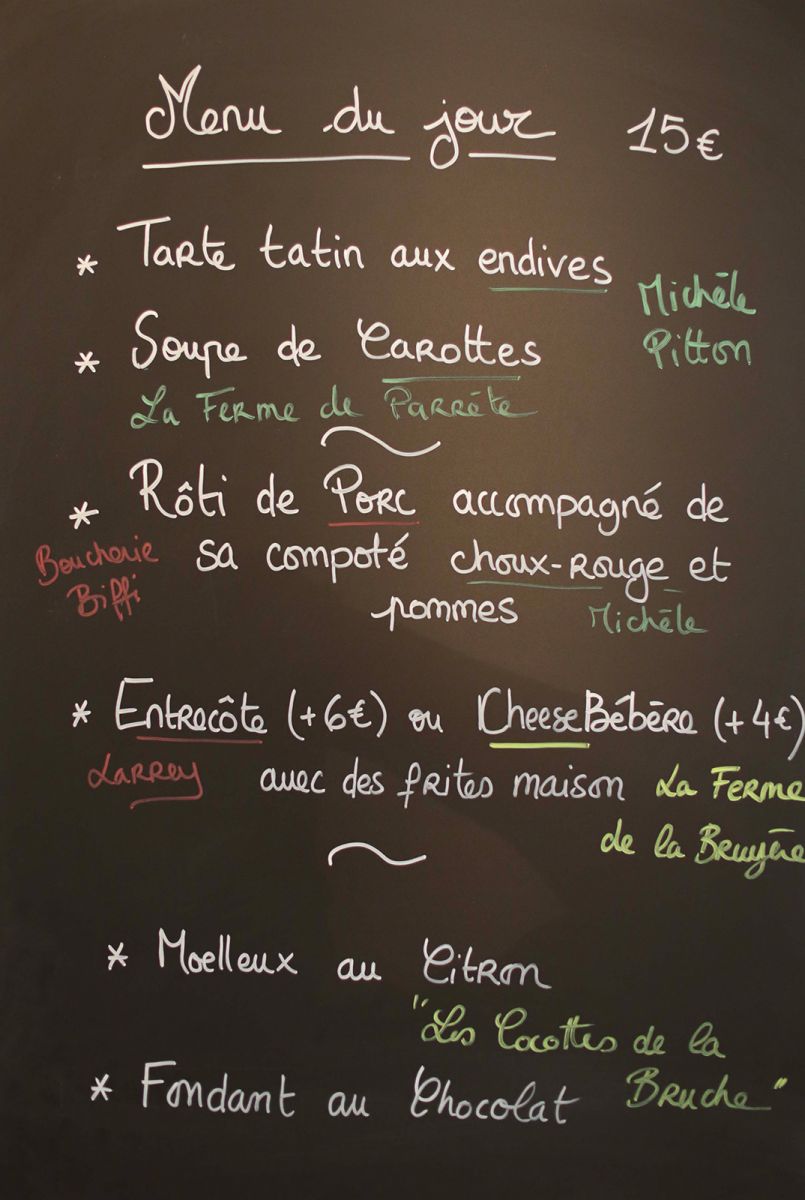 Menu du jour 15€
* Tarte tatin aux endives
Michèle
Pitton
* Soupe de Carottes
La Ferme de Parrète
* Rôti de Porc accompagné de
Boucherie
Biffi
sa compoté choux-rouge et
pommes Michèle
* Entrecôte (+6€) ou CheeseBébère (+4€)
Larrey avec des frites maison La Ferme
de la Bruyère
* Moelleux au Citron
"Les Cocottes de la
Bruche"
* Fondant au Chocolat